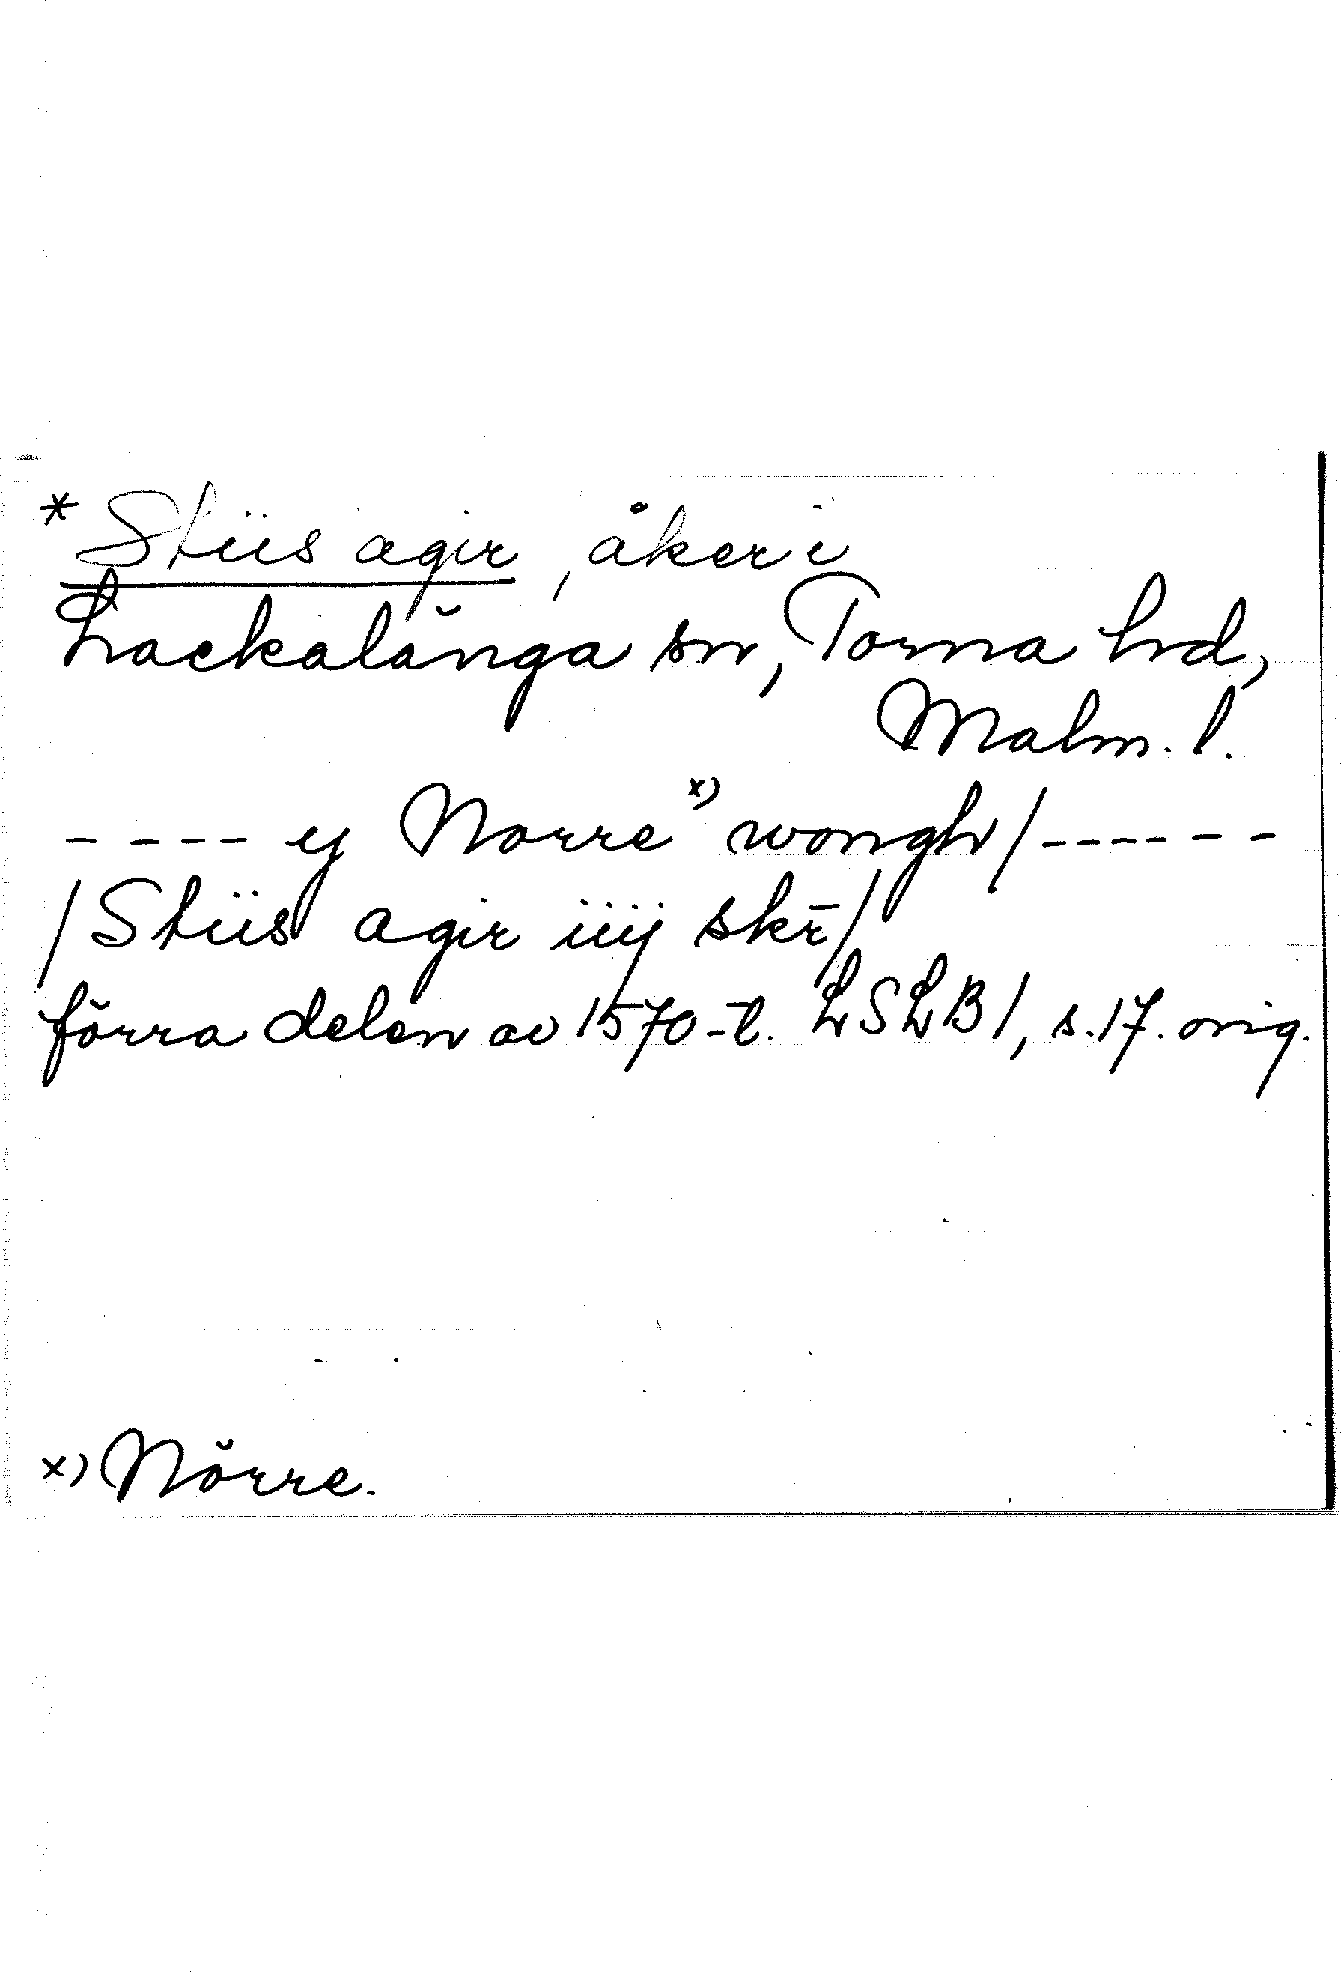 * Stiis agir, åker i
Lackalänga sn, Torna hd,
Malm. l.
---- ij Norre x) wongh/------
/Stiis agir iiij skr̄/
förra delen av 1570-t. LSLB 1, s. 17. orig.
x) Nörre.